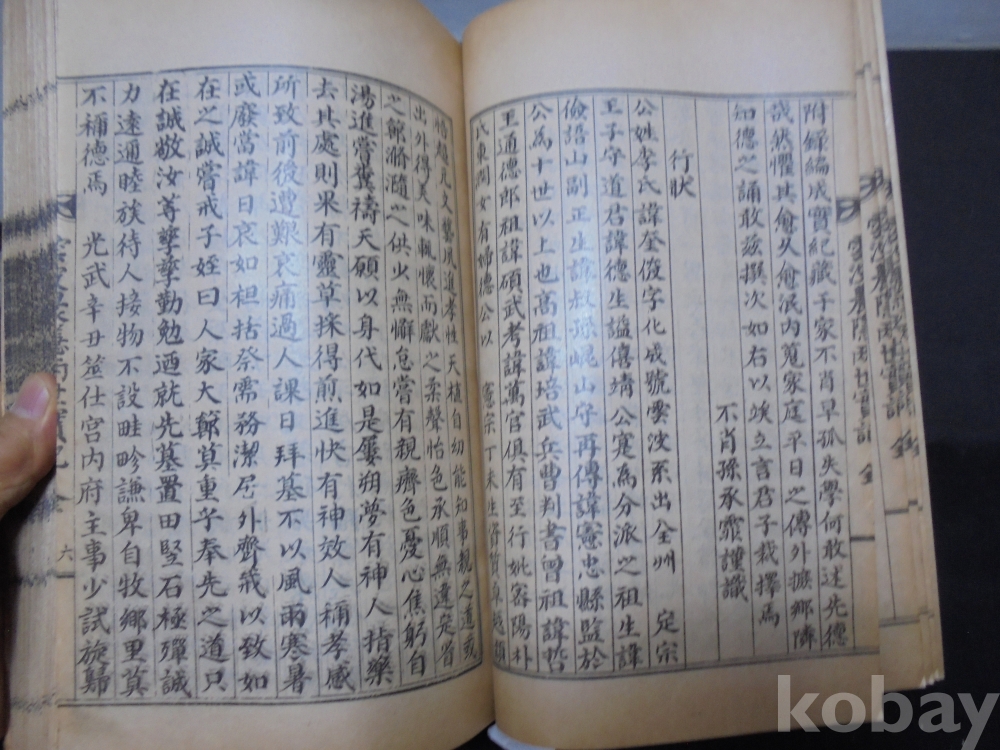 附錄編成實紀藏于家不肖早孤失學何敢述先德
哉然懼其愈久愈泯內蒐家庭平日之傳外摭鄉隣
知德之誦敢玆撰次如右以竢立言君子裁擇焉
不肖孫承霛謹識
行狀
公姓李氏諱奎俊字化成號雲汶系出全州 定宗
王子守道君諱德生謚僖靖公寔為分派之祖生諱
儉語山副正生諱叔琭崐山守再傳諱憲忠縣監於
公為十世以上也高祖諱培武兵曹判書曾祖諱哲
王通德郎祖諱碩武考諱萬官俱有至行妣密陽朴
氏東閏女有婦德公以 憲宗丁未生資質卓越穎
悟超凡文藝夙進孝性天植自幼能知事親之道或
出外得美味輒懷而獻之柔聲怡色承順無違定省
之節瀡之供少無懈怠嘗有親癠色憂心焦躬自
湯進嘗糞禱天願以身代如是屢朔夢有神人指藥
去其處則果有靈草採得煎進快有神效人稱孝感
所致前後遭艱哀痛過人課日拜墓不以風雨寒暑
或廢當諱日哀如袒括祭需務潔居外齊戒以致如
在之誠嘗戒子姪曰人家大節莫重乎奉先之道只
在誠敬汝等孳孳勤勉迺就先墓置田竪石極殫誠
力遠邇睦族待人接物不設畦畛謙卑自牧鄉里莫
不稱德焉 光武辛丑筮仕宮內府主事少試旋歸
六
kobay